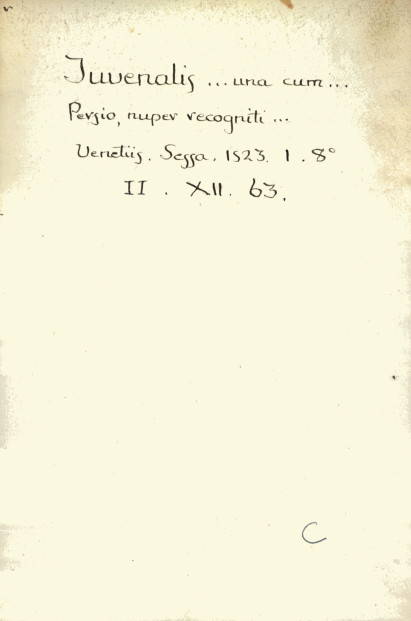 Juvenalis ... una cum ...
Persio, nuper recogniti ...
Venetiis. Sessa. 1523. 1. 8°
II. XII. 63.
C